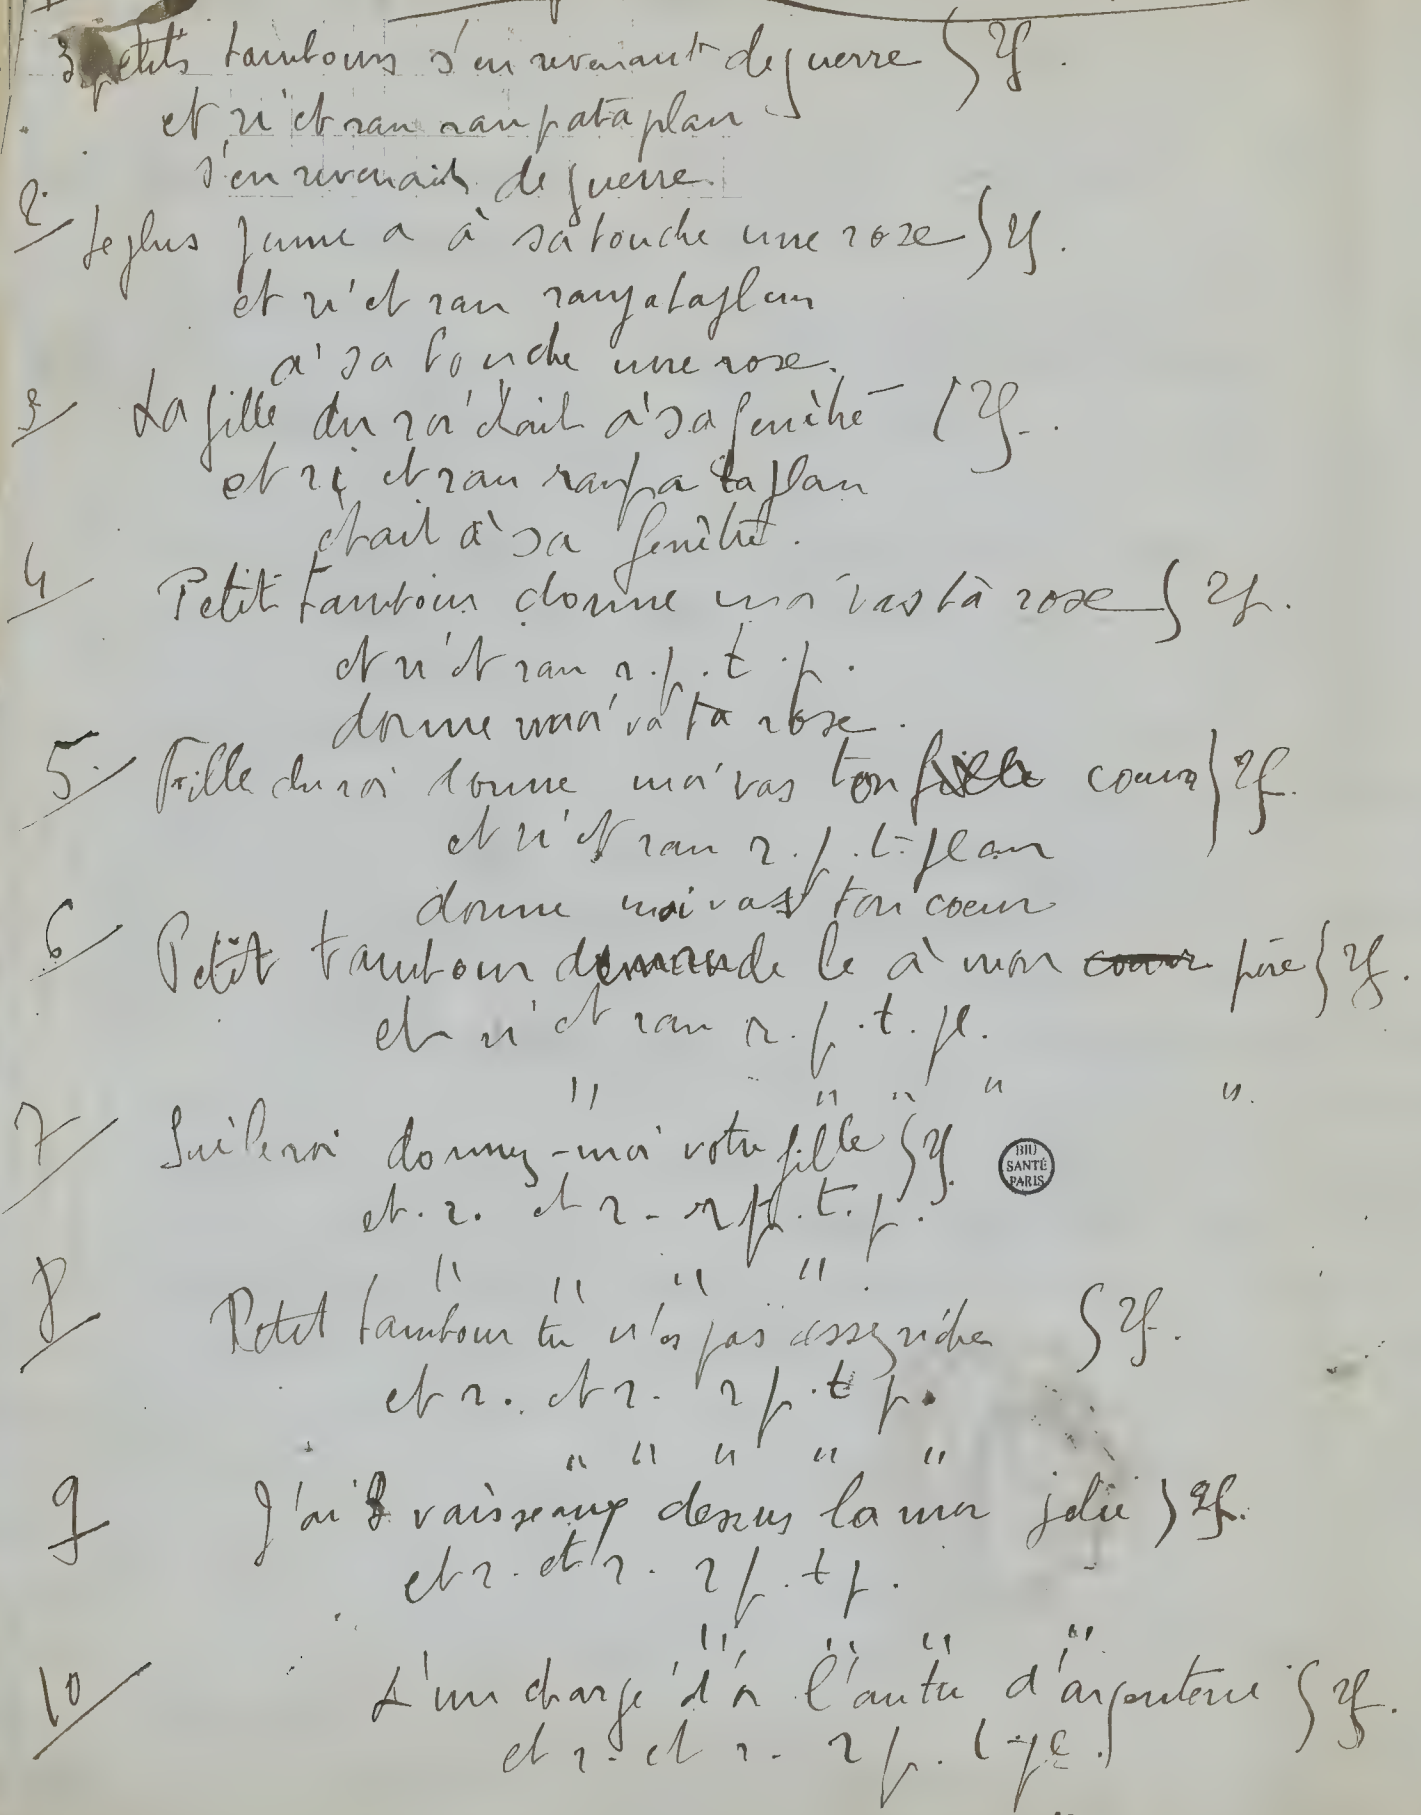 3 petits tambours s'en revenant de guerre } 2f.
et ri et ran ran pataplan
s'en revenait de guerre.
2. Le plus jeune a à sa bouche une rose } 2f.
et ri et ran ranpataplan
à sa bouche une rose.
3 La fille du roi était à sa fenêtre } 2f.
et ri et ran ranpataplan
était à sa fenêtre.
4 Petit tambour donne moi vas ta rose } 2f.
et ri et ran r.p.t.p.
donne moi va ta rose.
5. Fille du roi donne moi vas ton fille coeur } 2f.
et ri et ran r.p.t-plan
donne moi vas ton coeur
6 Petit tambour demande le à mon coeur père } 2f.
et ri et ran r.p.t.pl.
" " " " ".
7 Sire le roi donnez-moi votre fille } 2f.
et.r. et r- r p.t.p.
" " " "
8 Petit tambour tu n'es pas assez riche } 2f.
et r. et r. r p.t p.
" " " " "
9 J'ai 3 vaisseaux dessus la mer jolie } 2f.
et r. et r. r p.t p.
" " " "
10 L'un chargé d'or l'autre d'argenterie } 2f.
et r. et r. r p. t-pl.
BIU
SANTÉ
PARIS